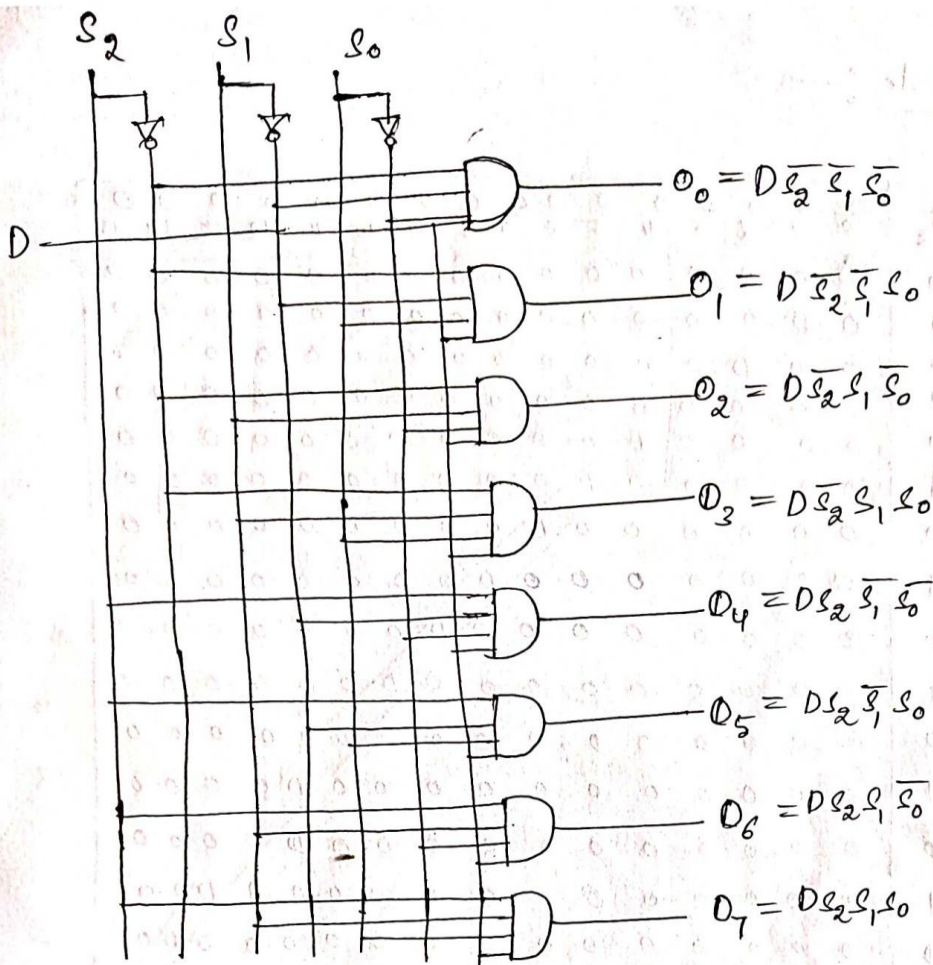 S₂ S₁ S₀
O₀ = D S̅₂ S̅₁ S̅₀
D
O₁ = D S̅₂ S̅₁ S₀
O₂ = D S̅₂ S₁ S̅₀
O₃ = D S̅₂ S₁ S₀
O₄ = D S₂ S̅₁ S̅₀
O₅ = D S₂ S̅₁ S₀
O₆ = D S₂ S₁ S̅₀
O₇ = D S₂ S₁ S₀